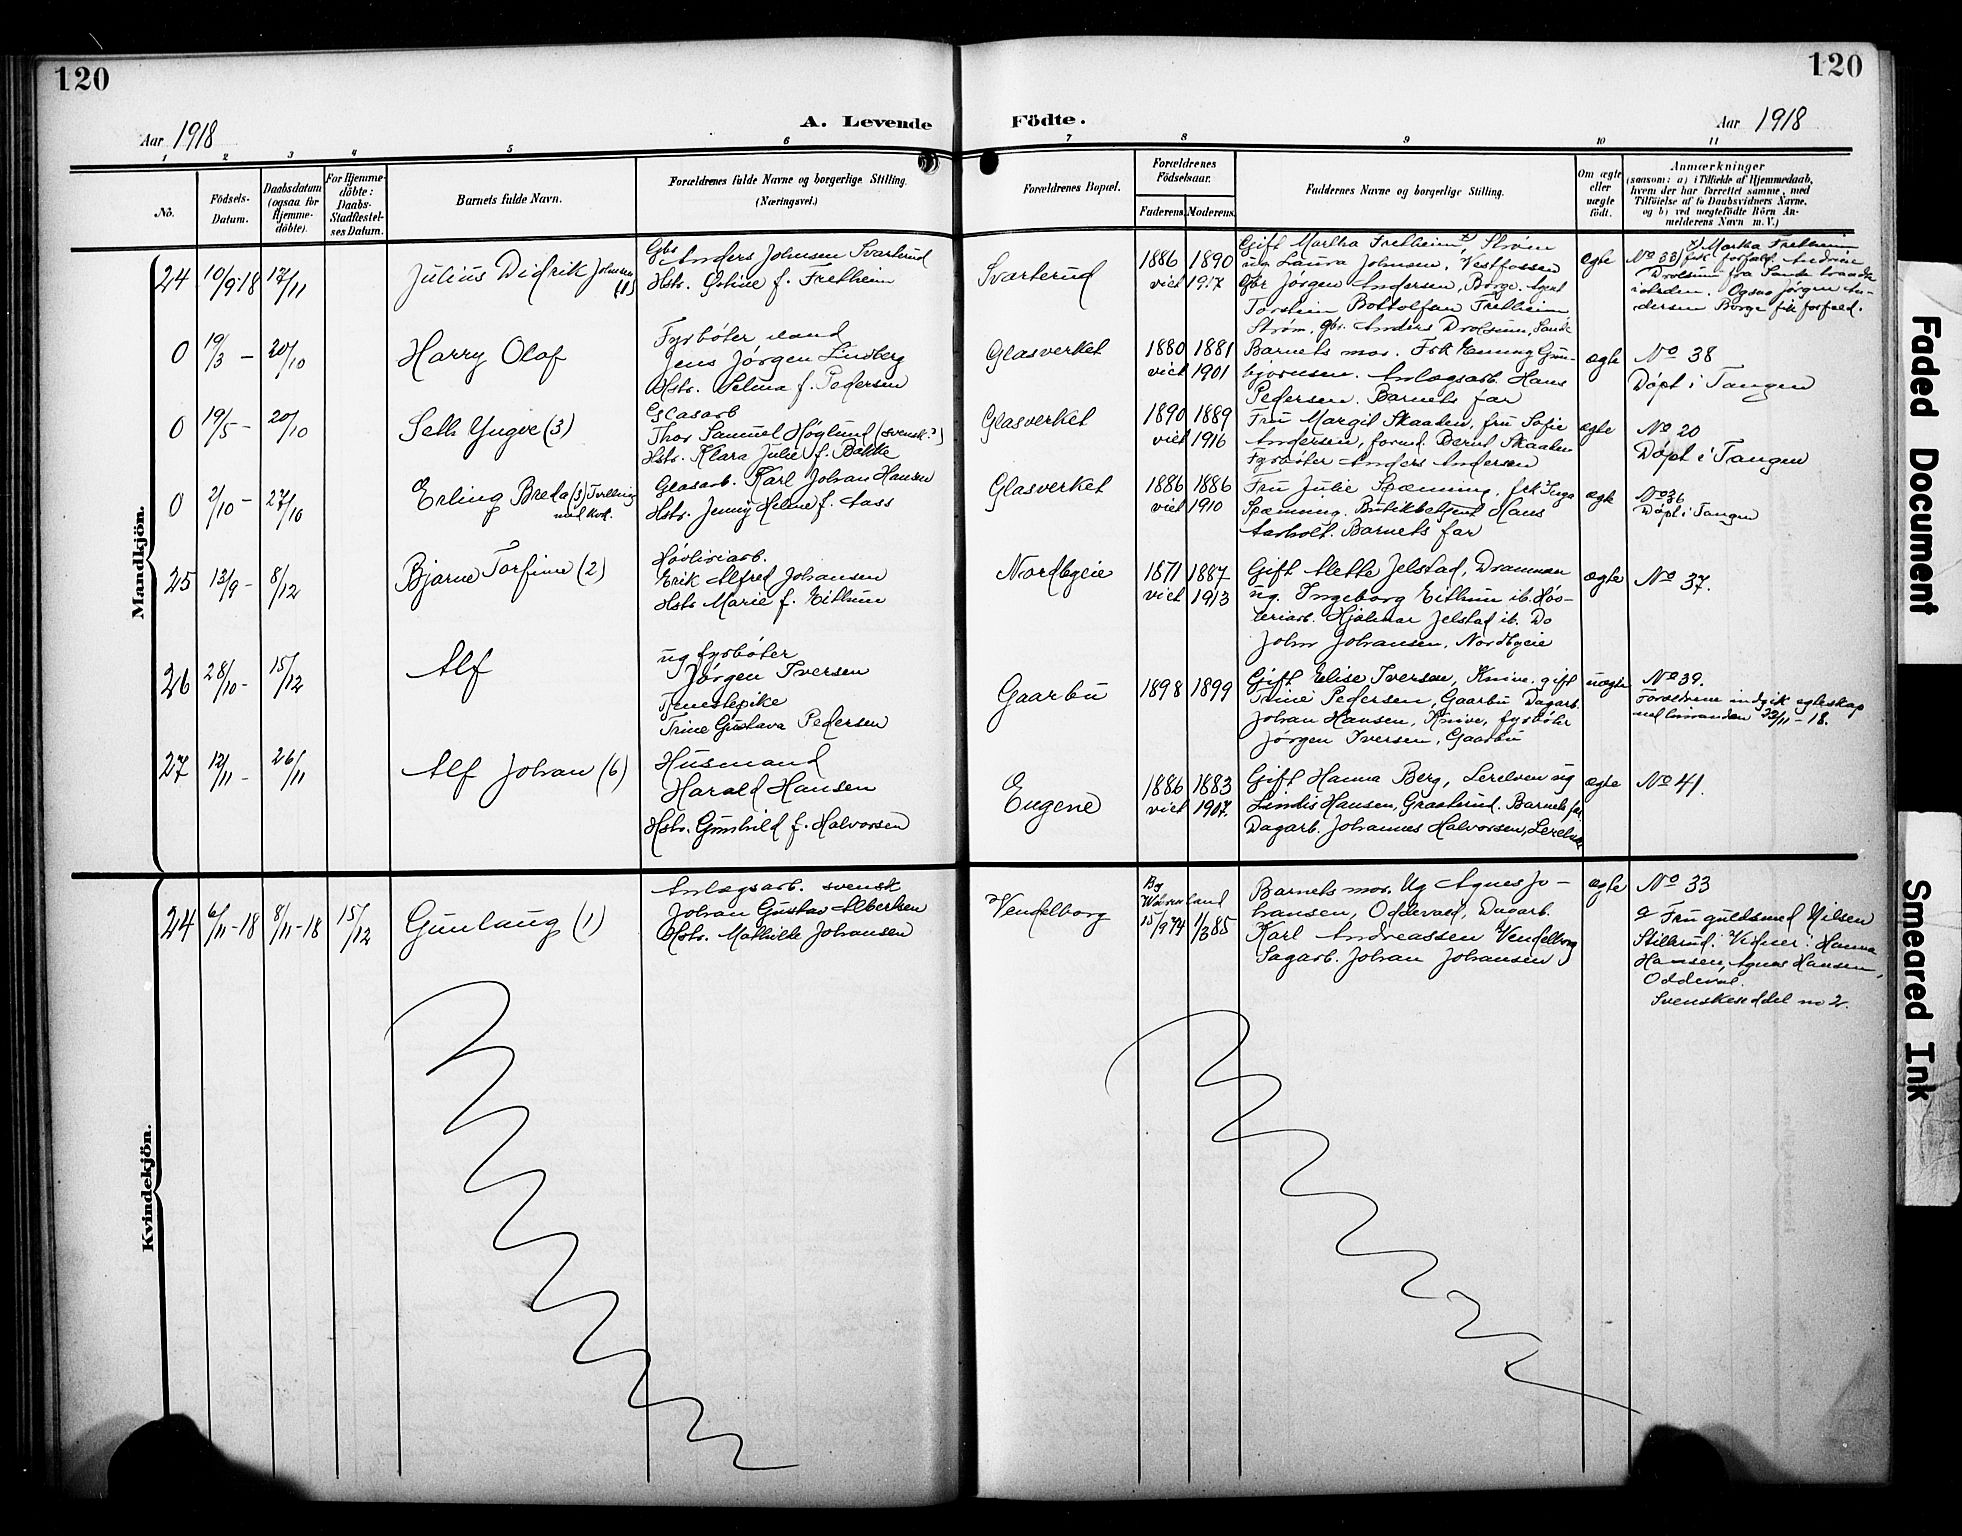 120
120
Aar 1918
A. Levende
Födte.
Aar 1918
1 2 3 4 5 6 7 8 9 10 11
No.
Födsels-
Datum.
Daabsdatum
(ogsaa for
Hjemme-
döbte).
For Hjemme-
döbte:
Daabs-
Stadfæstel-
ses Datum.
Barnets fulde Navn.
Forældrenes fulde Navne og borgerlige Stilling.
(Næringsvei.)
Forældrenes Bopæl.
Forældrenes
Födselsaar.
Faderens
Moderens
Faddernes Navne og borgerlig Stilling.
Om ægte
eller
uægte
födt.
Anmærkninger
(saasom: a) i Tilfælde af Hjemmedaab,
hvem der har forrettet samme, med
Tilföielse af to Daabsvidners Navne,
og b) ved uægtefödte Börn An-
melderens Navn m. V.)
Mandkjön.
24 10/9-18 17/11
Julius Didrik Johnsen
(1)
Gbr Anders Johnsen Svarterud
Hstr. f. Fretheim
Svarterud
1886 1890
viet 1917
Gift Martha Fretheim, Strøm
ug Laura Johnsen, Vestfossen
Gbr Jørgen Andersen, Borge. Agent
Torstein Bottolfsen Fretheim,
Strøm, gbr. Anders Drolsum, Sande
ægte
Martha Fretheim
No 33) fik forfald. Andrine
Drolsum fra Sande traadte
isteden. Ogsaa Jørgen An-
dersen Borge fik forfald.
0 19/3 - 20/10
Harry Olaf
Fyrbøter
Jens Jørgen Lindberg
Hstr. Selma f. Pedersen
Glasverket
1880 1881
viet 1901
Barnets mor. Frk Henny Gun-
bjørnsen. Anlægsarb. Hans
Pedersen. Barnets far
ægte
No 38
Døpt i Tangen
0 19/5 - 20/10
Seth Yngve (3)
Glasarb
Thor Samuel Høglund (svensk?)
Hstr. Klara Julie f. Bakke
Glasverket
1890 1889
viet 1916
Fru Margit Skaaden, fru Sofie
Andersen, formd. Bernt Skaaden
Fyrbøter Anders Andersen
ægte
No 20
Døpt i Tangen
0 2/10 - 27/10
Erling Breda (3) Tvilling
med kvk.
Glasarb. Karl Johan Hansen
Hstr. Jenny Helene f. Aass
Glasverket
1886 1886
viet 1910
Fru Julie Spænning, frk Inga
Spænning. Butikbetjent Hans
Aarholt. Barnets far
ægte
No 36
Døpt i Tangen
25 13/9 - 8/12
Bjarne Torfinn (2)
Høvleriarb.
Erik Alfred Johansen
Hstr Marie f. Eithun
Nordbyeie
1871 1887
viet 1913
Gift Alette Jelstad, Drammen
ug. Ingeborg Eithun ib. Høv-
leriarb. Hjalmar Jelstad ib. Do
John Johansen, Nordbyeie
ægte
No 37.
26 28/10- 15/12
Alf
ug fyrbøter
Jørgen Iversen
Tjenestepike
Trine Gustava Pedersen
Gaarbu
1898 1899
Gift Elise Iversen, Knive. gift
Trine Pedersen, Gaarbu Dagarb.
Johan Hansen, Knive, fyrbøter
Jørgen Iversen, Gaarbu
uægte
No 39.
Forældrene indgik egteskap
med hverandre 23/11 - 18.
27 12/11 - 26/11
Alf Johan (6)
Husmand
Harald Hansen
Hstr. Gunhild f. Halvorsen
Eugene
1886 1883
viet 1907.
Gift Hanna Berg, Lerelven ug
Hansen, Graaterud. Barnets far
Dagarb. Johannes Halvorsen, Lerelven
ægte
No 41.
Kvindekjön.
24 6/11-18 8/11-18 15/12
Gunlaug (1)
Anlægsarb. svensk
Johan Gustav Albertsen
Hstr. Mathilde Johansen
Vendelborg
15/9 74 1/3 85
Barnets mor. Ug Agnes Jo-
hansen, Oddevald, Dagarb.
Karl Andreassen Vendelborg
Sagarb. Johan Johansen
ægte
No 33
Fru guldsmed Nilsen
Stillerud. Vidner: Hanna
Hansen, Agnes Hansen,
Oddeval.
Svenskeseddel no 2.
Faded Document
Smeared Ink